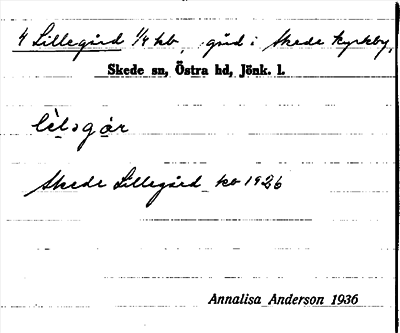 4 Lillegård 1/4 hb, gård i Skede kyrkby,
Skede sn, Östra hd, Jönk. l.
lìlagår
Skede Lillegård kb 1926
Annalisa Anderson 1936